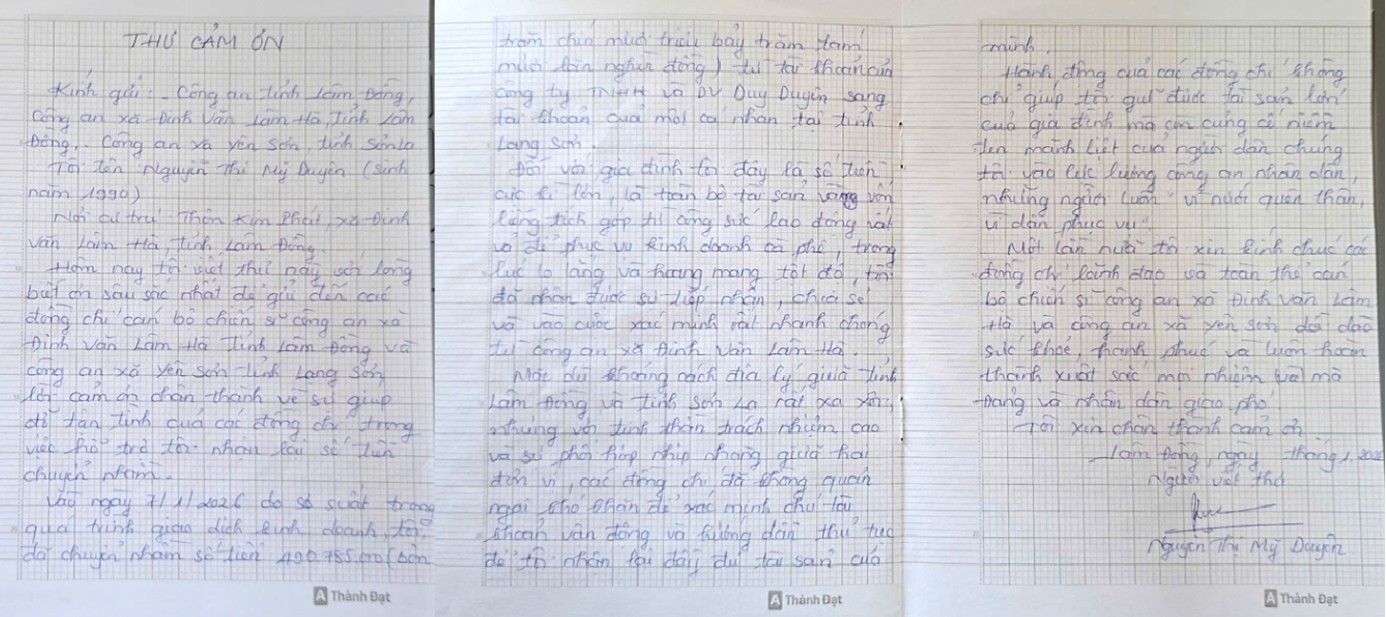 THƯ CẢM ƠN
Kính gửi: - Công an tỉnh Lâm Đồng,
Công an xã Đinh Văn Lâm Hà, Tỉnh Lâm
Đồng,. Công an xã yên Sơn, tỉnh Sơn La
Tôi tên Nguyễn Thị Mỹ Duyên (Sinh
năm 1990)
Nơi cư trú: Thôn Kim Phát, xã Đinh
Văn Lâm Hà, Tỉnh Lâm Đồng
Hôm nay tôi viết thư này với lòng
biết ơn sâu sắc nhất để gửi đến các
đồng chí cán bộ chiến sĩ công an xã
Đinh Văn Lâm Hà Tỉnh Lâm Đồng và
công an xã yên Sơn Tỉnh Lạng Sơn
lời cảm ơn chân thành về sự giúp
đỡ tận tình của các đồng chí trong
việc hỗ trợ tôi nhận lại số tiền
chuyển nhầm.
Vào ngày 7/1/2026 do sơ suất trong
quá trình giao dịch kinh doanh, tôi
đã chuyển nhầm số tiền 490.785.000 (bốn
trăm chín mươi triệu bảy trăm tám
mươi lăm nghìn đồng) từ tài khoản của
công ty TNHH và DV Duy Duyên sang
tài khoản của một cá nhân tại tỉnh
Lạng Sơn.
Đối với gia đình tôi đây là số tiền
cực kì lớn, là toàn bộ tài sản vốn
liếng tích góp từ công sức lao động vất
vả để phục vụ kinh doanh cà phê, trong
lúc lo lắng và hoang mang tột độ, tôi
đã nhận được sự tiếp nhận, chia sẻ
và vào cuộc xác minh rất nhanh chóng
từ công an xã Đinh Văn Lâm Hà.
Mặc dù khoảng cách địa lý giữa Tỉnh
Lâm Đồng và Tỉnh Sơn La rất xa xôi,
nhưng với tinh thần trách nhiệm cao
và sự phối hợp nhịp nhàng giữa hai
đơn vị, các đồng chí đã không quản
ngại khó khăn để xác minh chủ tài
khoản vận động và hướng dẫn thủ tục
để tôi nhận lại đầy đủ tài sản của
mình.
Hành động của các đồng chí không
chỉ giúp tôi giữ được tài sản lớn
của gia đình mà còn củng cố niềm
tin mãnh liệt của người dân chúng
tôi vào lực lượng công an nhân dân,
những người luôn "vì nước quên thân,
vì dân phục vụ".
Một lần nữa tôi xin kính chúc các
đồng chí lãnh đạo và toàn thể cán
bộ chiến sĩ công an xã Đinh Văn Lâm
Hà và công an xã yên Sơn dồi dào
sức khoẻ, hạnh phúc và luôn hoàn
thành xuất sắc mọi nhiệm vụ mà
Đảng và nhân dân giao phó
Tôi xin chân thành cảm ơn
Lâm Đồng, ngày tháng 1, 2026
Người viết thư
Nguyễn Thị Mỹ Duyên
Thành Đạt
Thành Đạt
Thành Đạt